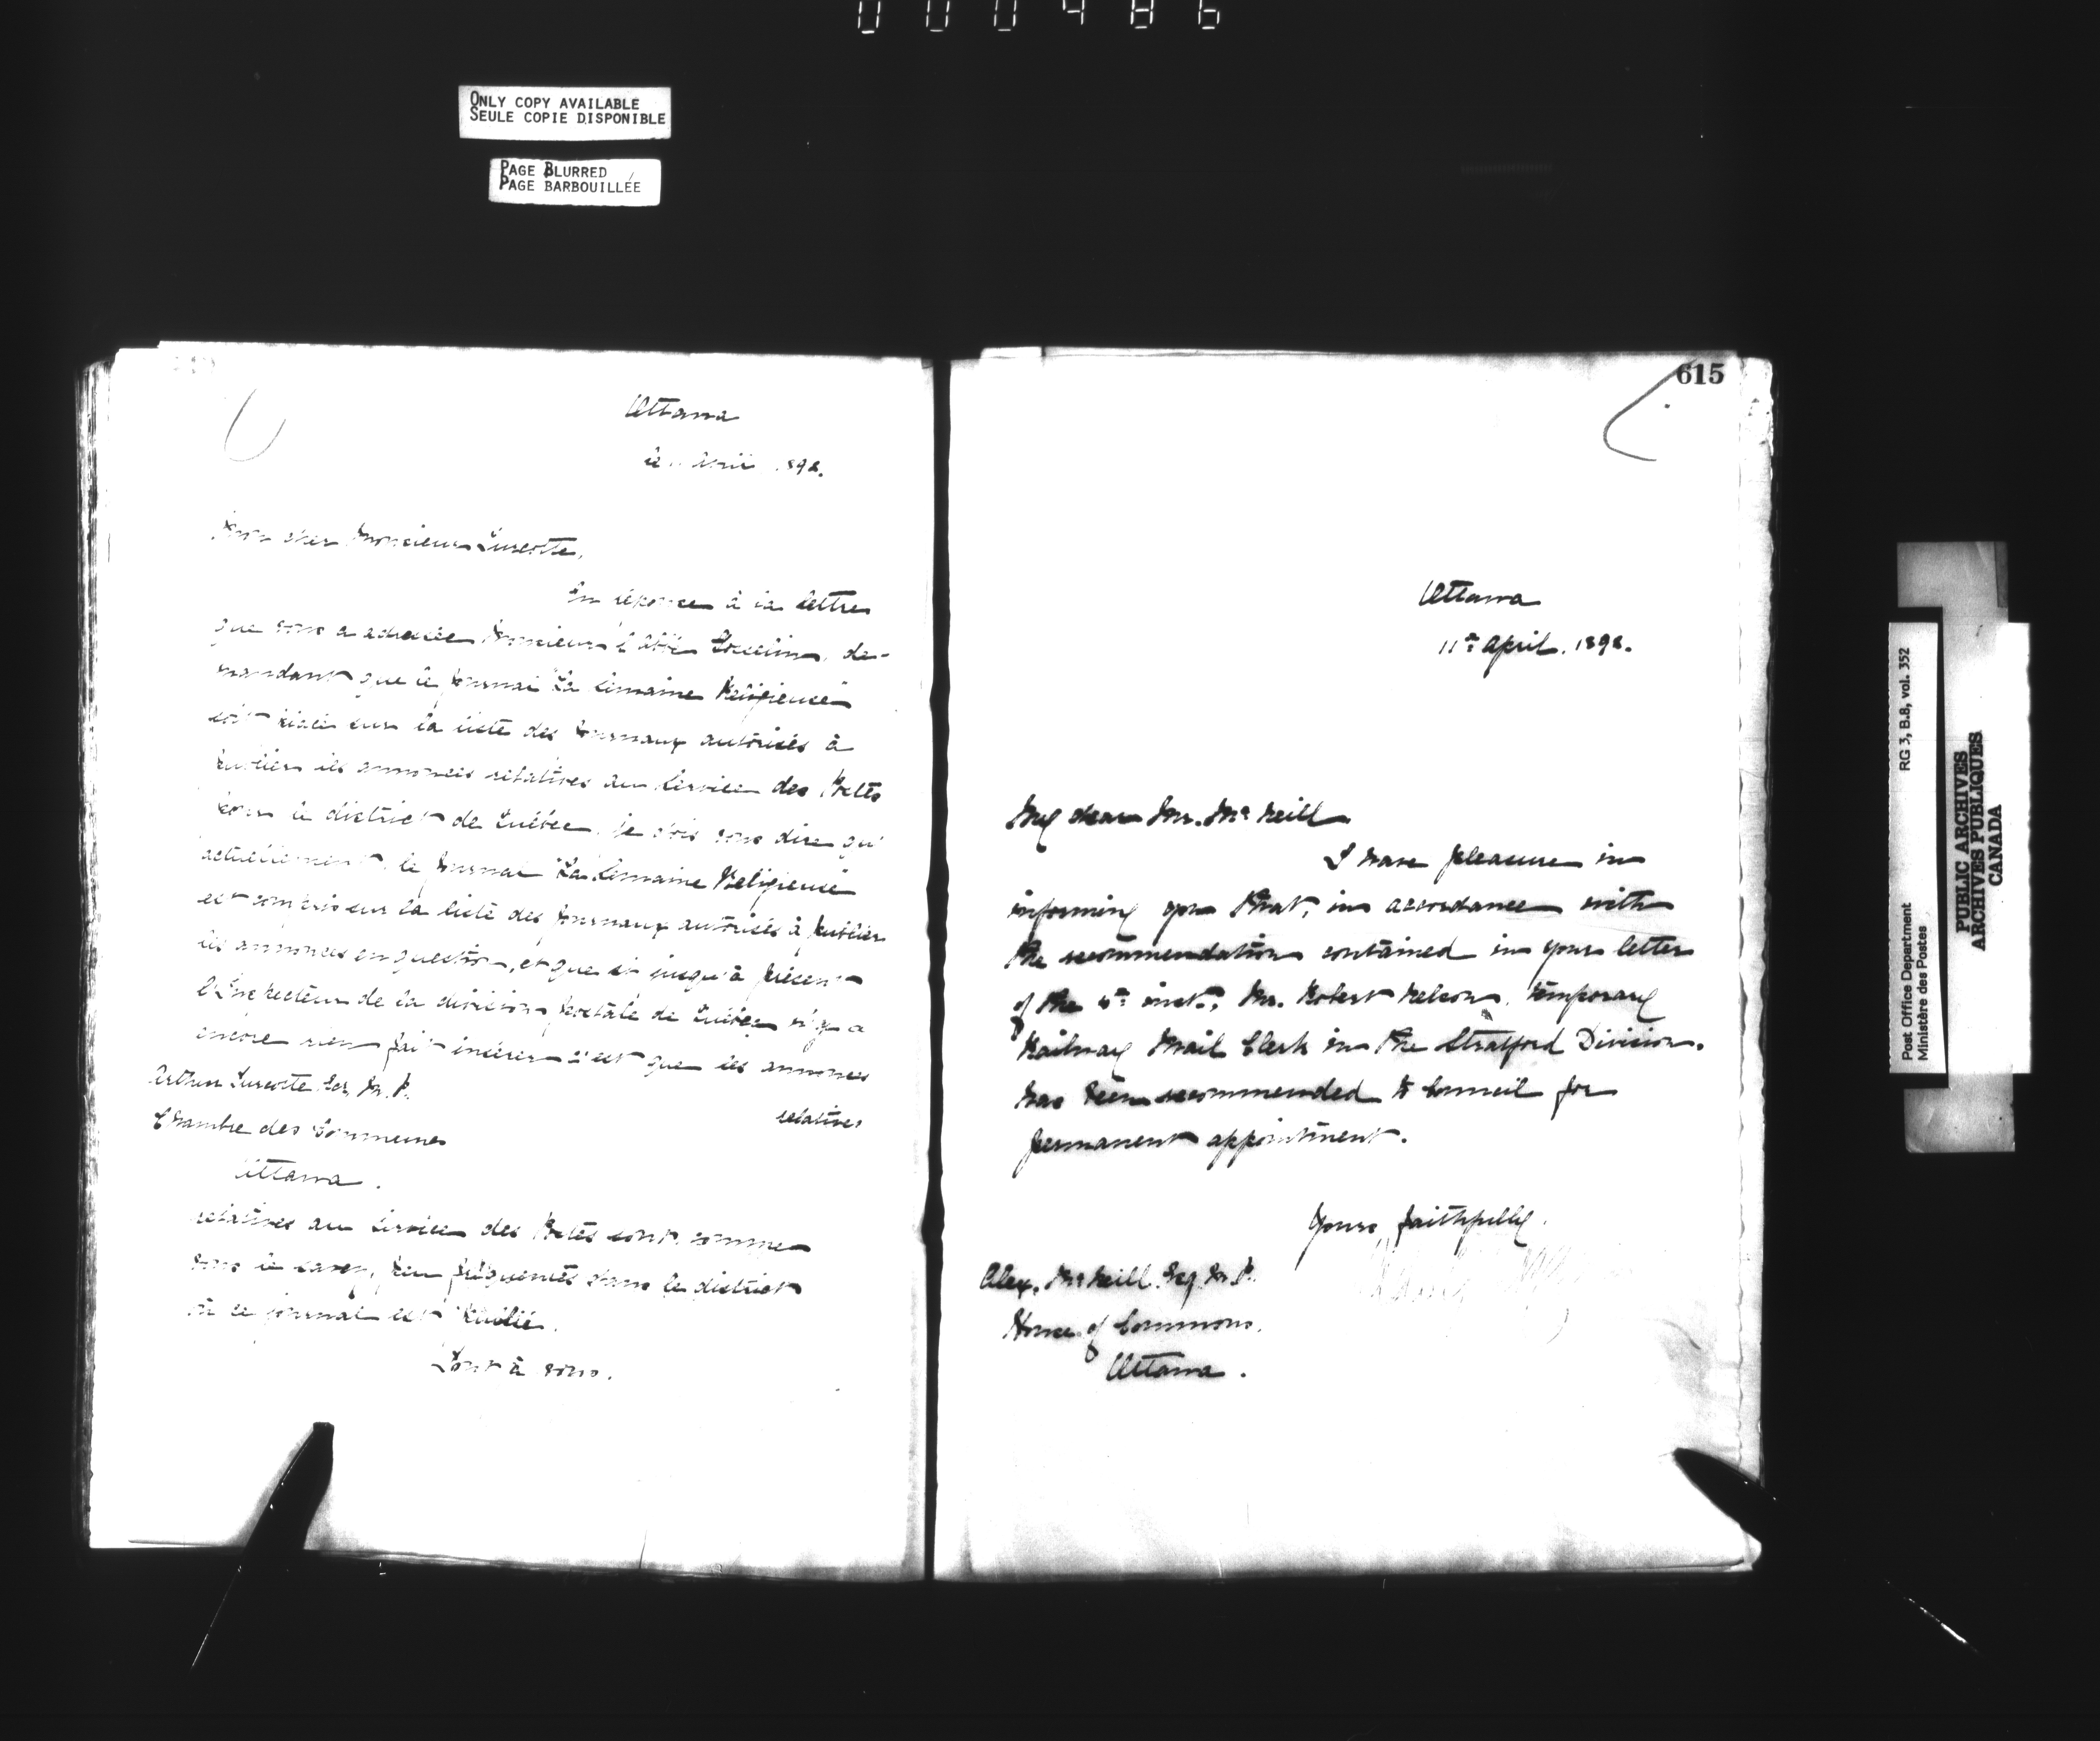 000486
ONLY COPY AVAILABLE
SEULE COPIE DISPONIBLE
PAGE BLURRED
PAGE BARBOUILLÉE
Ottawa
le Avril 1892.
Mon cher Monsieur Turcotte,
En réponse à la lettre
que vous a adressée Monsieur l'abbé de-
mandant que le journal "La Semaine Religieuse"
soit placé sur la liste des journaux autorisés à
publier les annonces relatives au Service des Postes
pour le district de Québec, je dois vous dire qu'
actuellement le journal "La Semaine Religieuse"
est compris sur la liste des journaux autorisés à publier
les annonces en question, et que si jusqu'à présent
l'Inspecteur de la division postale de Québec n'y a
encore rien fait insérer c'est que les annonces
relatives
Arthur Turcotte Ecr, M.P.
Chambre des Communes
Ottawa.
relatives au service des Postes sont, comme
vous le savez, peu fréquentes dans le district
où ce journal est publié.
Tout à vous.
615
Ottawa
11th April, 1892.
My dear Mr. McNeill
I have pleasure in
informing you that, in accordance with
the recommendation contained in your letter
of the inst., Mr. Robert Nelson, temporary
Railway Mail Clerk in the Stratford Division,
has been recommended to Council for
permanent appointment.
Yours faithfully,
Alex. McNeill Esq. M.P.
House of Commons,
Ottawa.
RG 3, B.8, vol. 352
Post Office Department
Ministère des Postes
PUBLIC ARCHIVES
ARCHIVES PUBLIQUES
CANADA